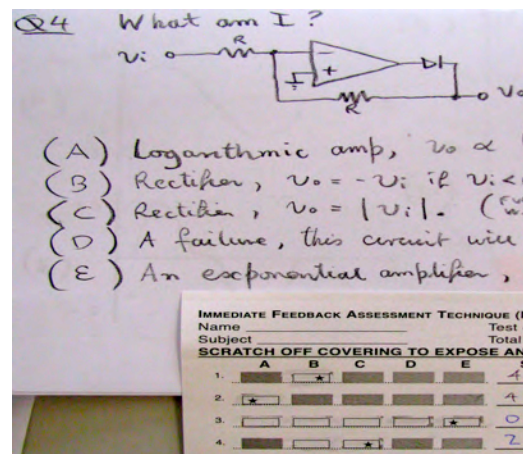 Q4 What am I ?
R
vi
−
+
R
vo
(A) Logarithmic amp, vo ∝
(B) Rectifier, vo = -vi if vi <
(C) Rectifier, vo = |vi|. (
(D) A failure, this circuit will
(E) An exponential amplifier,
IMMEDIATE FEEDBACK ASSESSMENT TECHNIQUE (
Name Test
Subject Total
SCRATCH OFF COVERING TO EXPOSE AN
A B C D E
1. ★ 4
2. ★ 4
3. ★ 0
4. ★ 2